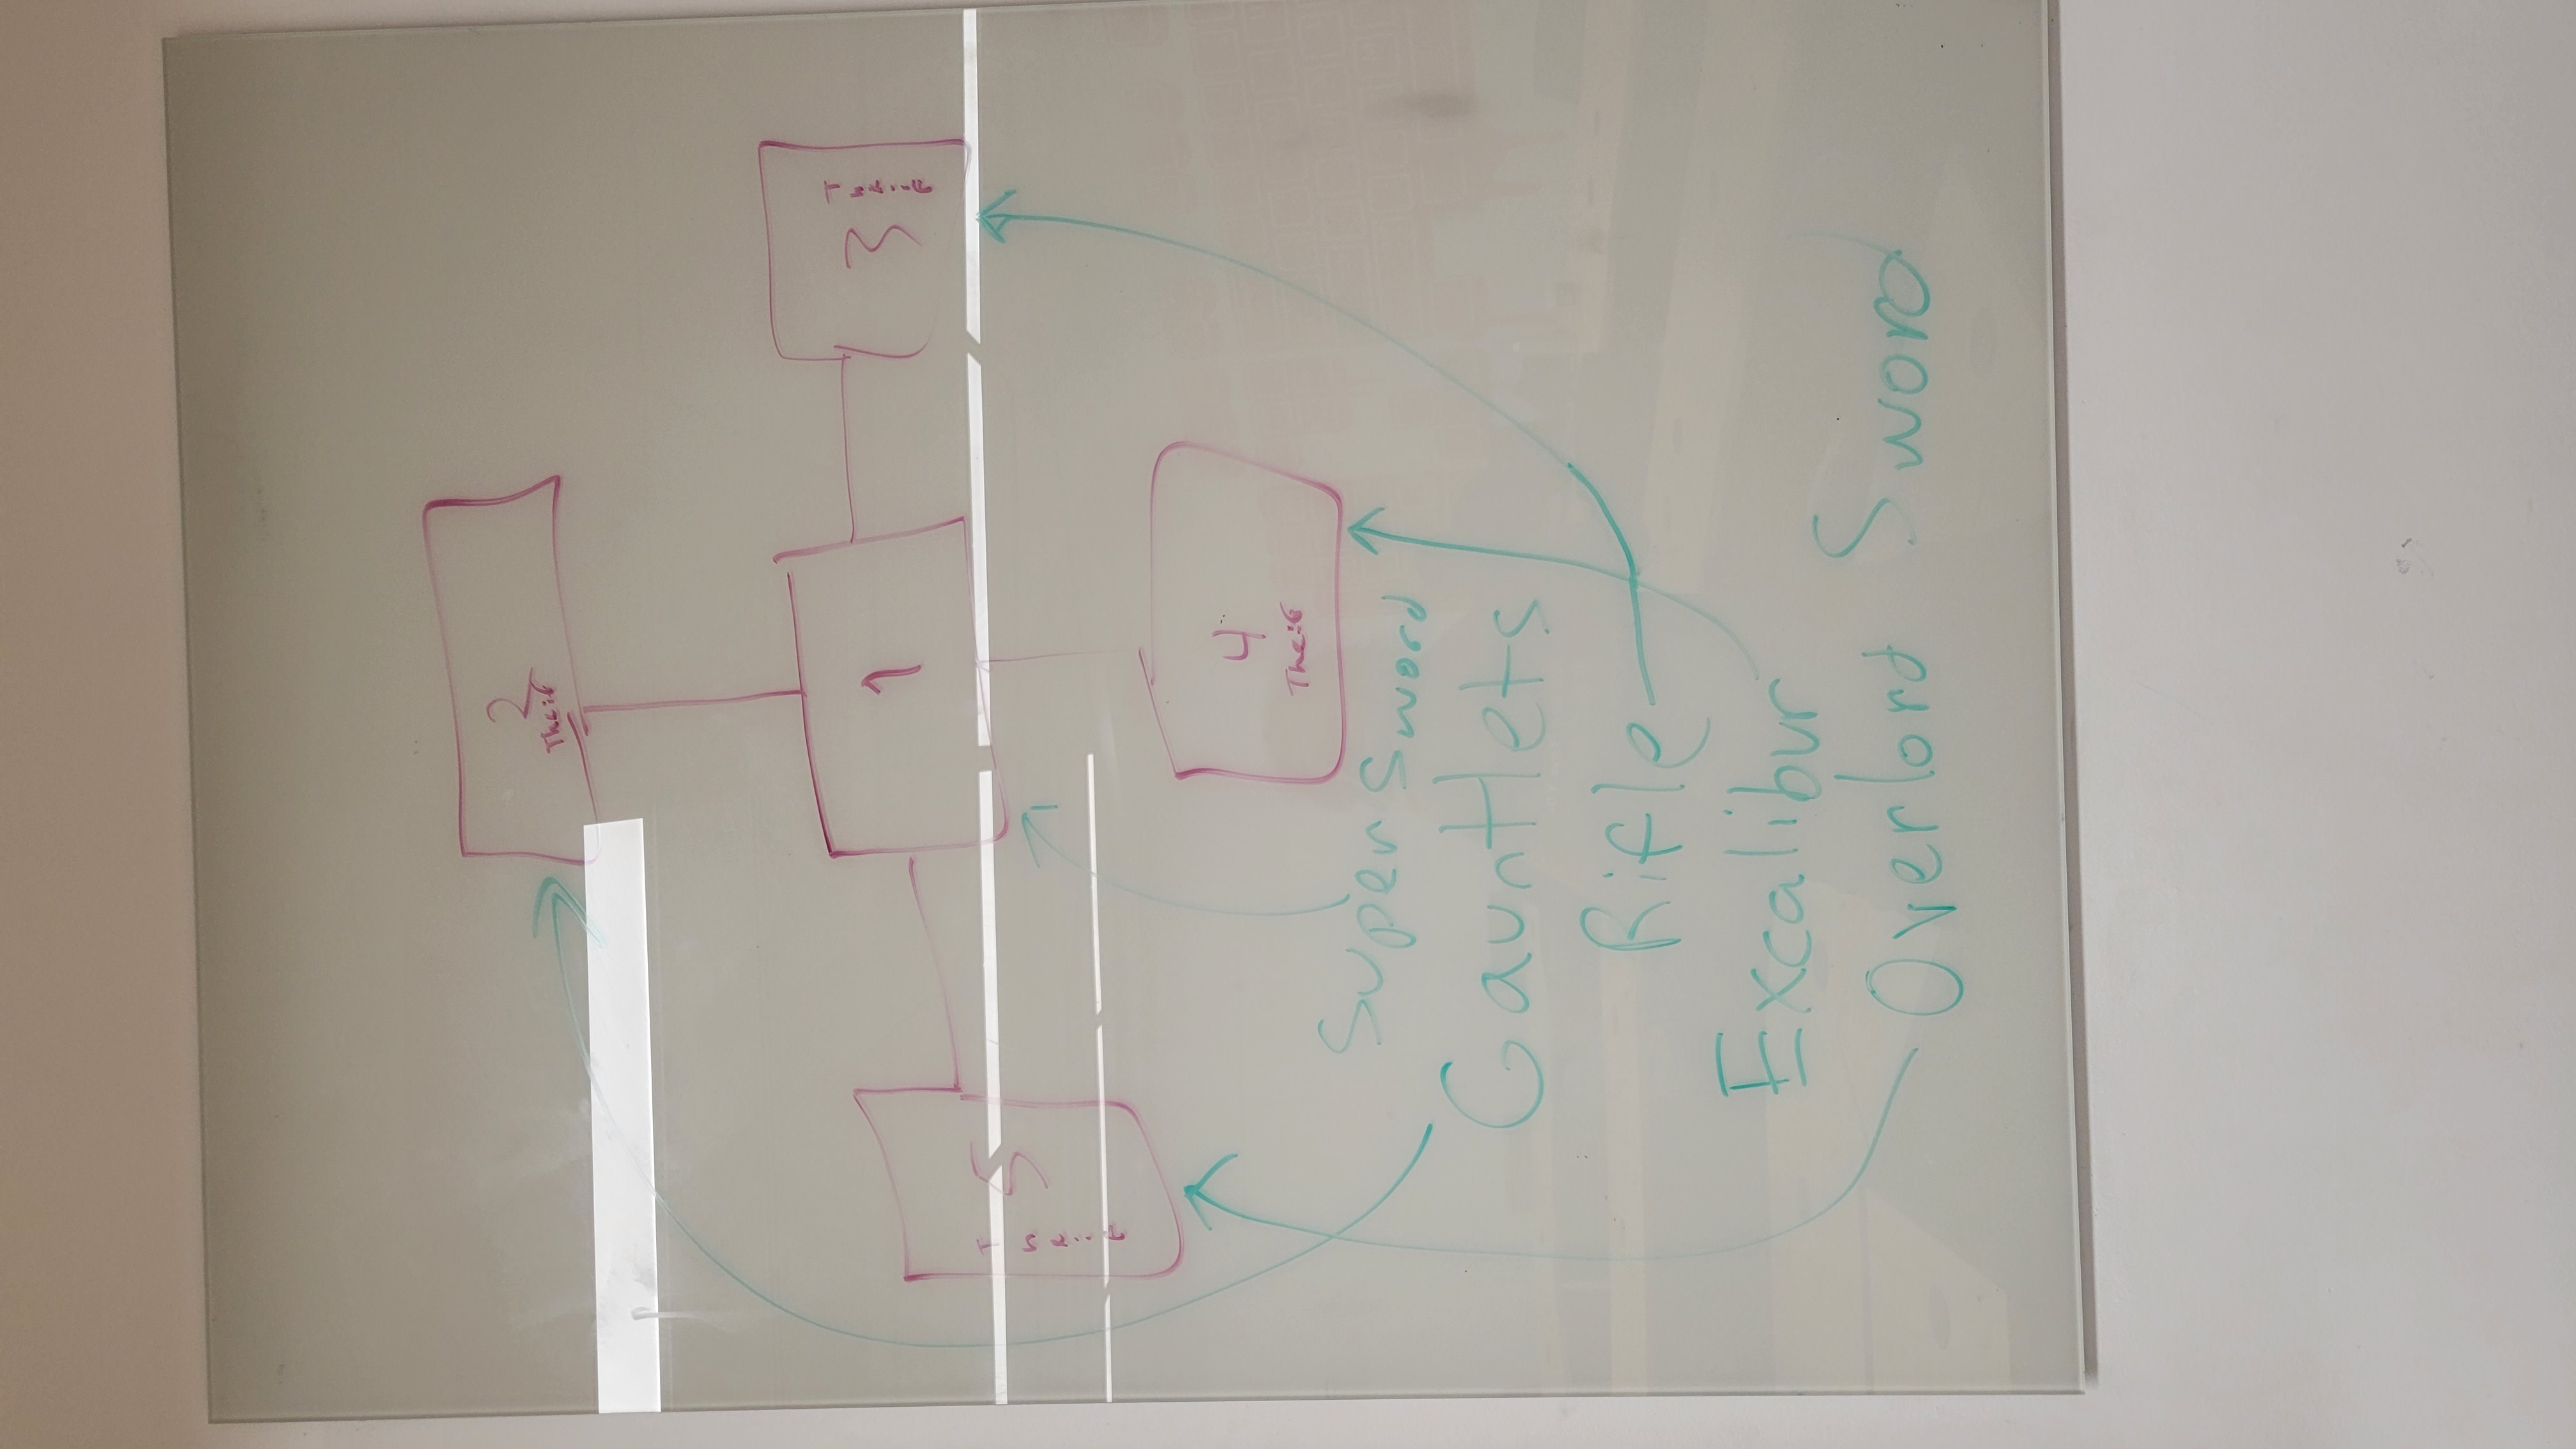 2
Theif
1
3
Theif
5
Theif
4
Theif
Super Sword
Gauntlets
Rifle
Excalibur
Overlord Sword